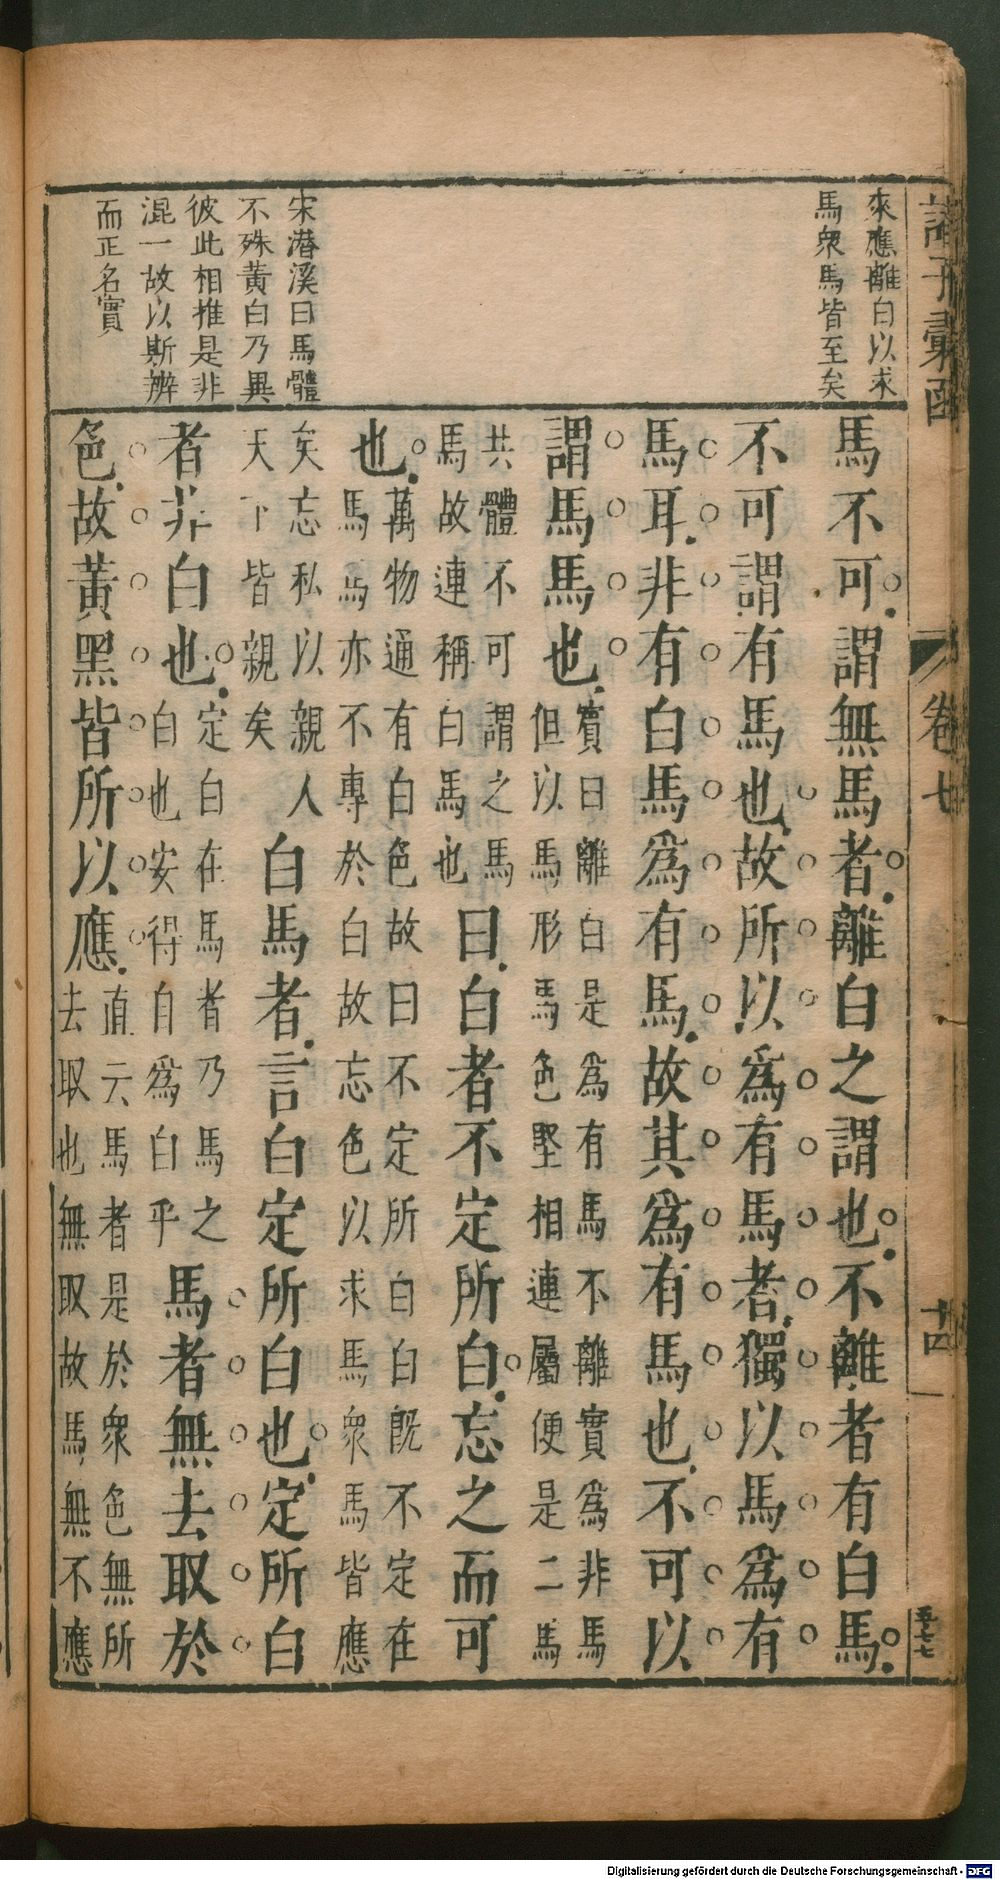 諸子彙函
卷七
來應離白以求
馬衆馬皆至矣
宋潛溪曰馬體
不殊黃白乃異
彼此相推是非
混一故以斯辨
而正名實
馬不可謂無馬者離白之謂也不離者有白馬
不可謂有馬也故所以爲有馬者獨以馬爲有
馬耳非有白馬爲有馬故其爲有馬也不可以
謂馬馬也
實曰離白是爲有馬不離實爲非馬
但以馬形馬色堅相連屬便是二馬
共體不可謂之馬
馬故連稱白馬也
曰白者不定所白忘之而可
也
萬物通有白色故曰不定所白白旣不定在
馬馬亦不專於白故忘色以求馬衆馬皆應
矣忘私以親人
天下皆親矣
白馬者言白定所白也定所白
者非白也
定白在馬者乃馬之
白也安得自爲白乎
馬者無去取於
色故黃黑皆所以應
直云馬者是於衆色無所
去取也無取故馬無不應
Digitalisierung gefördert durch die Deutsche Forschungsgemeinschaft - DFG